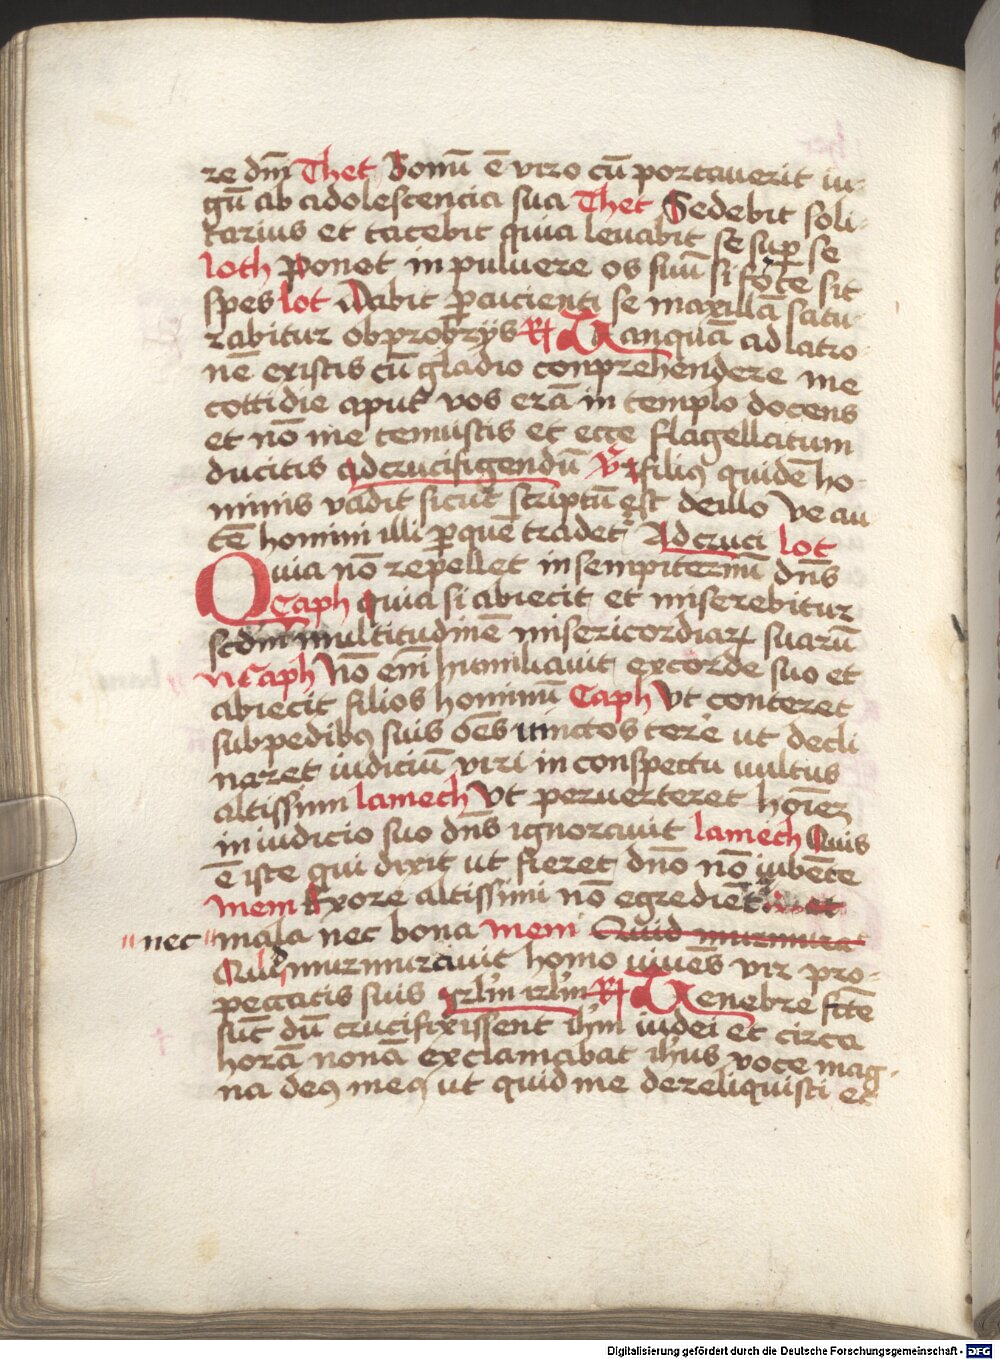 re dn̄i Thet Bonū ē viro cū portauerit iu-
gū ab adolescencia sua Thet Sedebit soli-
tarius et tacebit quia leuabit se sup̱ se
loth Ponet in puluere os suū si fo͛te sit
spes lot Dabit p̱cucienti se maxillā satu-
rabitur obprobrijs R̷ Tanquā ad latro
nē existis cū gladio conprehendere me
cottidie aput vos erā in templo docens
et nō me tenuistis et ecce flagellatum
ducitis adcrucifigendū V̷ filiꝰ quidē ho-
minis vadit sicut scriptū est deillo Ve au
tē homini illi p̱ quē tradet᷑ Adcruci lot
Quia nō repellet insempiternū dn̄s
Caph quia si abiecit et miserebitur
scd̄m multitudinē misericordiarꝝ suarū
Caph Nō em̄ humiliauit excorde suo et
abiecit filios hominū Caph Vt conteret
subpedibꝰ suis oēs vinctos tere ut decli
naret iudiciū viri in conspectu uultus
altissimi lamech Vt peruerteret hoīem
in iudicio suo dn̄s ignorauit lamech Quis
ē iste qui dixit ut fieret dn̄o nō iubēte
Mem Exore altissimi nō egrediēt᷑
"nec "mala nec bona Mem Quid murmura
Quid murmurauit homo viuēs vir pro-
peccatis suis irl̄m irl̄m R̷ Tenebre fcē
sūt dū crucifixissent ih̄m iudei et circa
horā nonā exclamabat ih̄us voce mag-
na deꝰ meꝰ ut quid me dereliquisti et
Digitalisierung gefördert durch die Deutsche Forschungsgemeinschaft - DFG